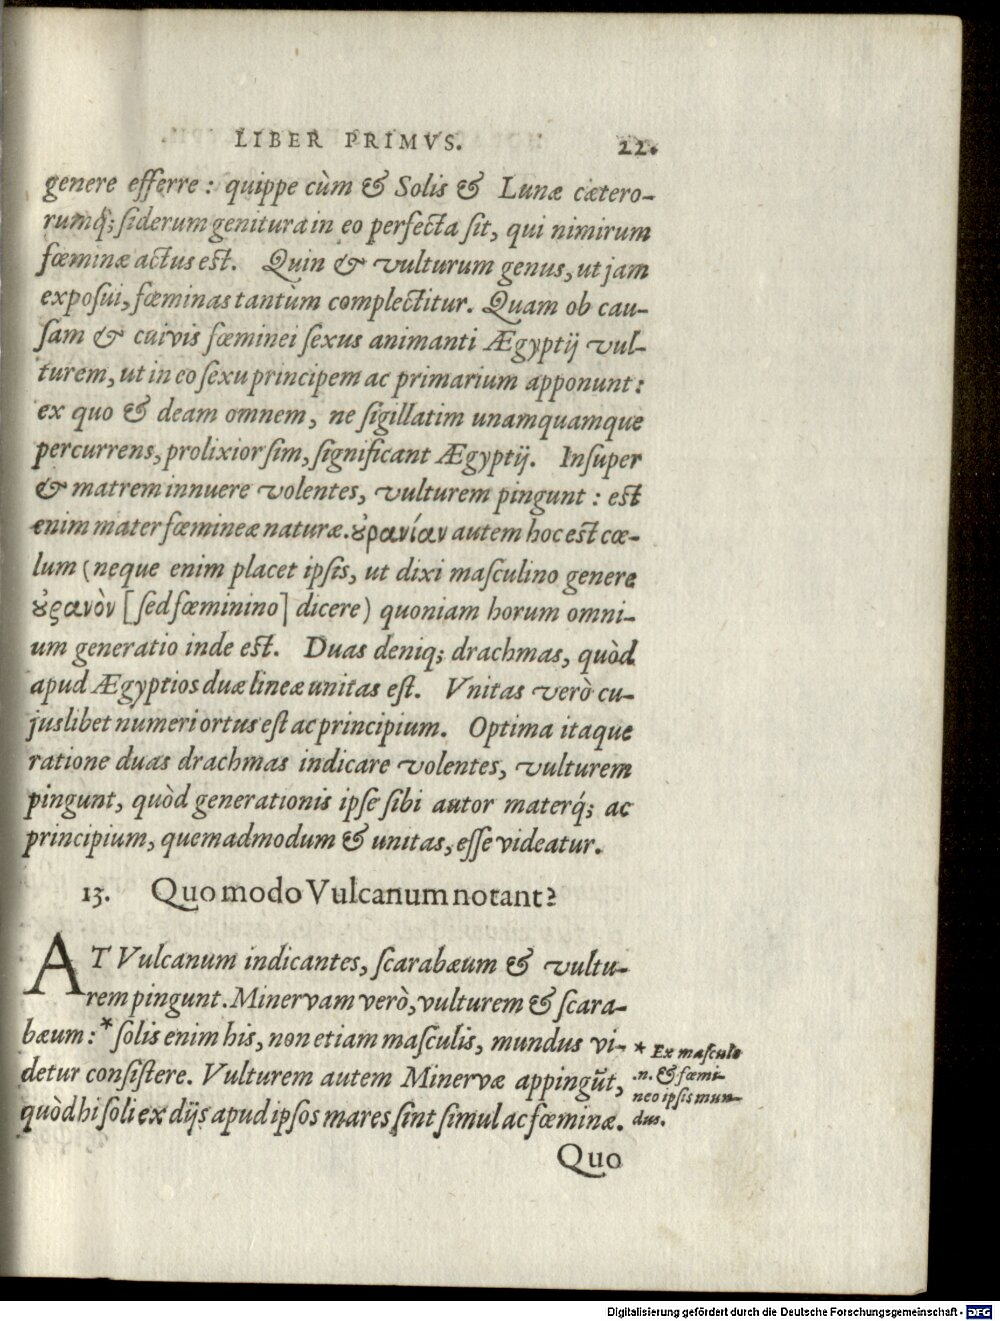 LIBER PRIMVS. 22.
genere efferre : quippe cùm & Solis & Lunæ cætero-
rumq́; siderum genitura in eo perfecta sit, qui nimirum
fœminæ actus est. Quin & vulturum genus, ut jam
exposui, fœminas tantùm complectitur. Quam ob cau-
sam & cuivis fœminei sexus animanti Ægyptij vul-
turem, ut in eo sexu principem ac primarium apponunt:
ex quo & deam omnem, ne sigillatim unamquamque
percurrens, prolixior sim, significant Ægyptij. Insuper
& matrem innuere volentes, vulturem pingunt : est
enim mater fœmineæ naturæ. ȣρανίαν autem hoc est cœ-
lum (neque enim placet ipsis, ut dixi masculino genere
ȣ̓ρανὸν [sed fœminino] dicere) quoniam horum omni-
um generatio inde est. Duas deniq; drachmas, quòd
apud Ægyptios duæ lineæ unitas est. Vnitas verò cu-
juslibet numeri ortus est ac principium. Optima itaque
ratione duas drachmas indicare volentes, vulturem
pingunt, quòd generationis ipse sibi autor materq́; ac
principium, quemadmodum & unitas, esse videatur.
13. Quo modo Vulcanum notant?
AT Vulcanum indicantes, scarabæum & vultu-
rem pingunt. Minervam verò, vulturem & scara-
bæum : * solis enim his, non etiam masculis, mundus vi-
detur consistere. Vulturem autem Minervæ appingũt,
quòd hi soli ex dijs apud ipsos mares sint simul ac fœminæ.
* Ex masculo
.n. & fœmi-
neo ipsis mun-
dus.
Quo
Digitalisierung gefördert durch die Deutsche Forschungsgemeinschaft - DFG